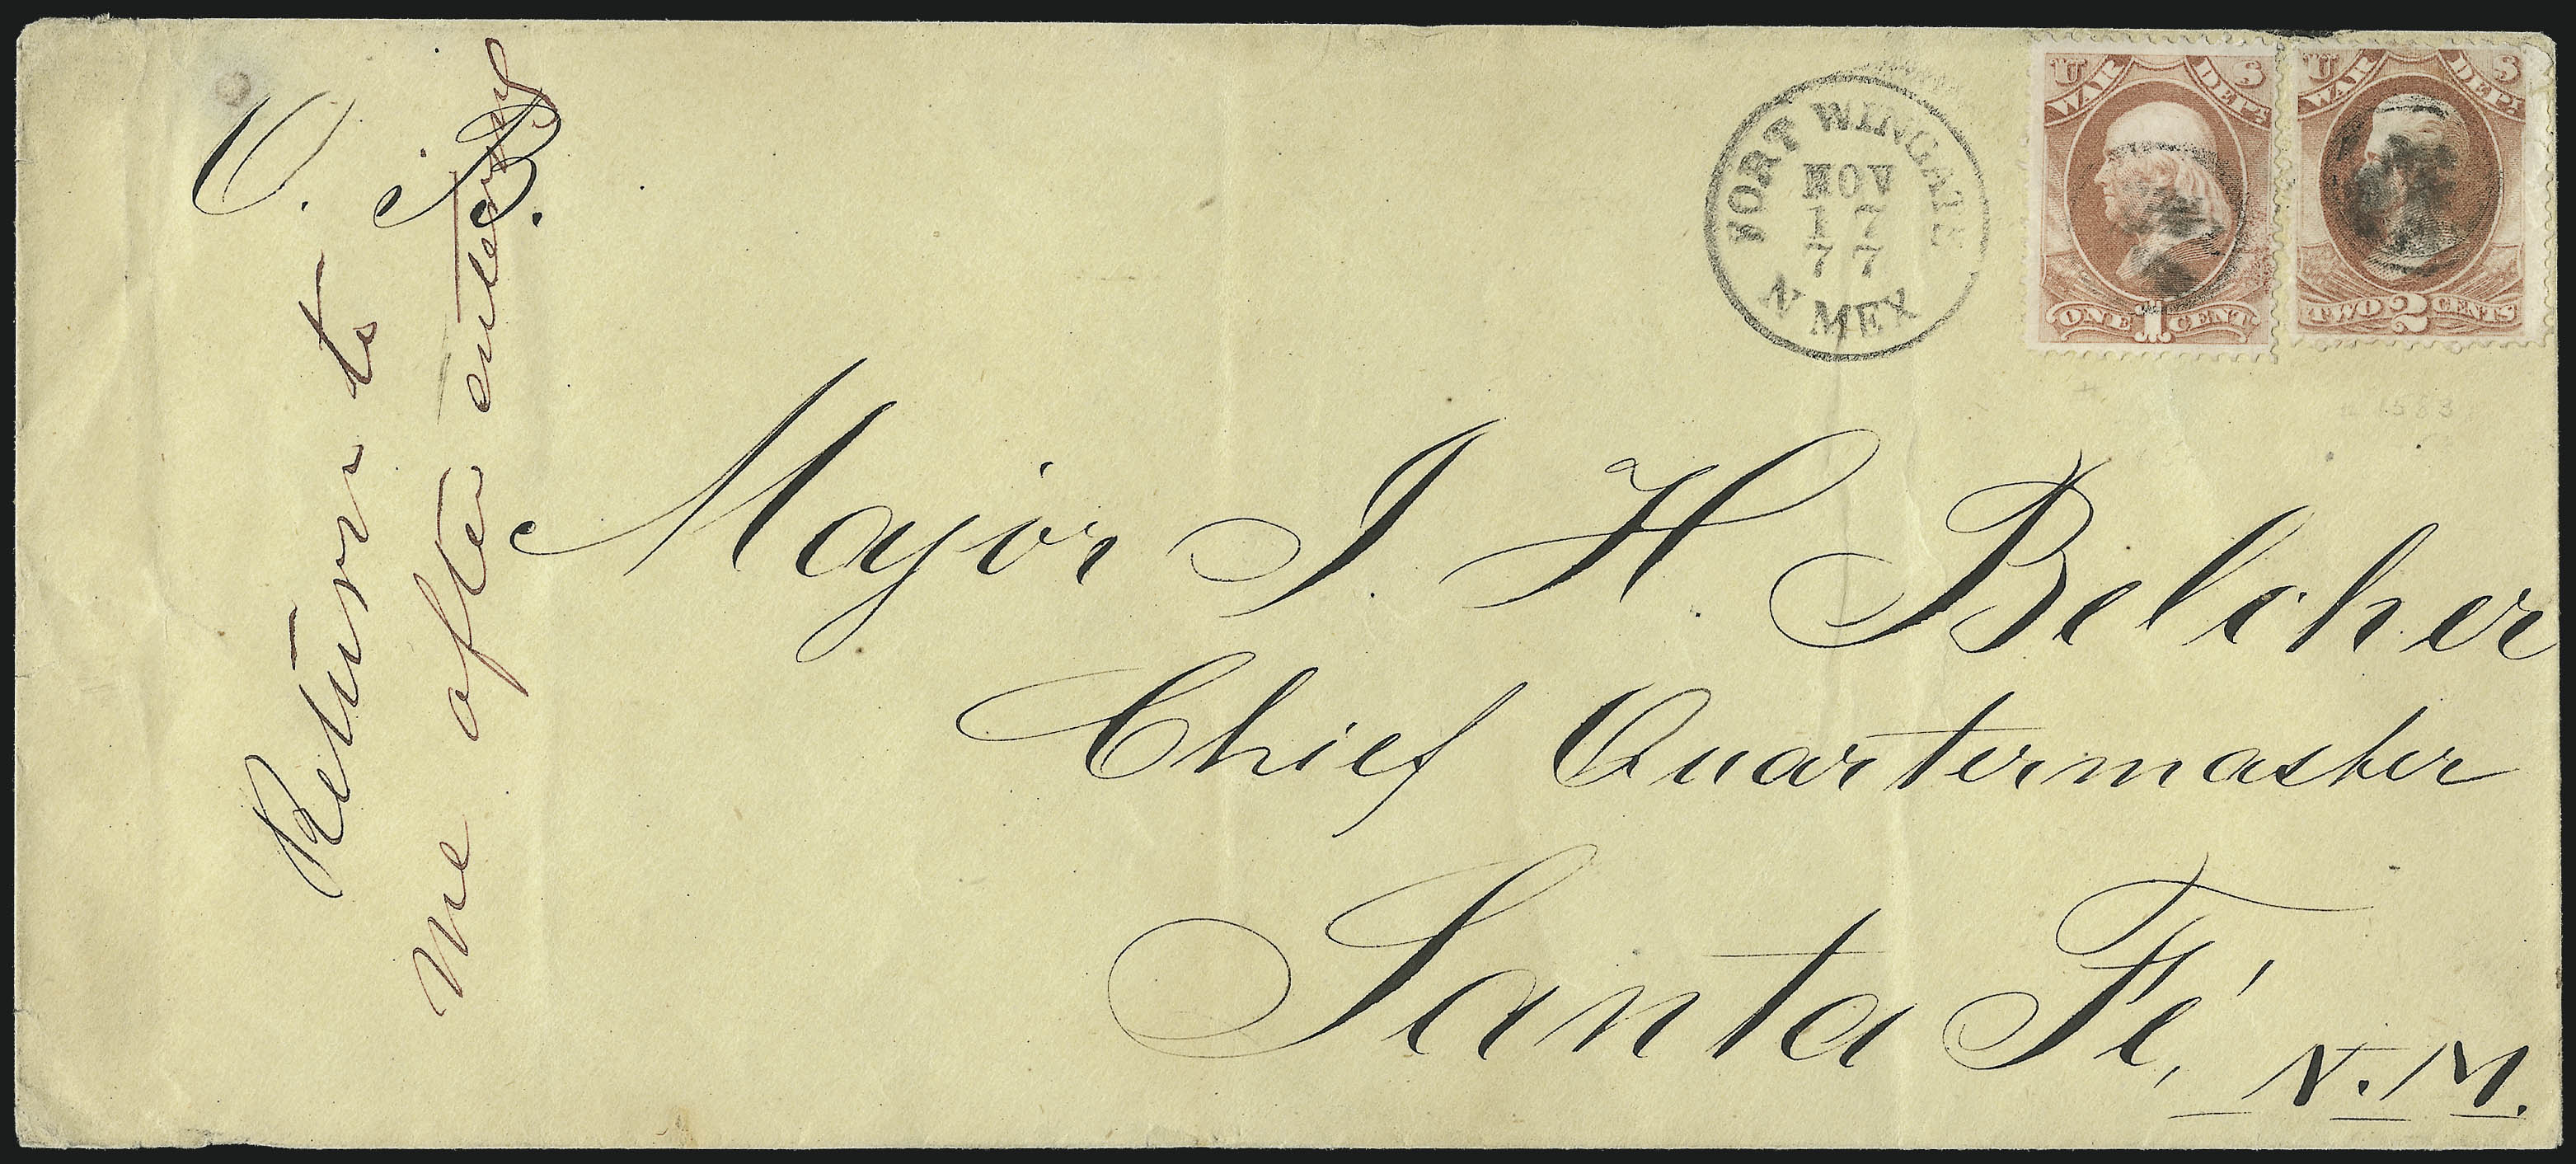 O. B.
Return to
me after entering
FORT WINGATE
NOV
17
77
N MEX
U S
WAR DEPT
ONE 1 CENT
U S
WAR DEPT
TWO 2 CENTS
Major J. H. Belcher
Chief Quartermaster
Santa Fé, N. M.